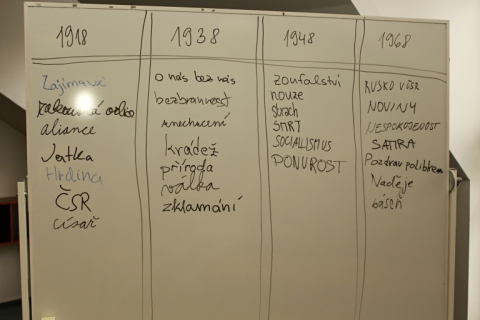 1918
Zajímavé
aliance
Jatka
Hrdina
ČSR
císař
1938
o nás bez nás
bezbrannost
Anechacení
krádež
příroda
válka
zklamání
1948
zoufalství
nouze
strach
SMRT
SOCIALISMUS
PONUROST
1968
RUSKO
NOVINY
NESPOKOJENOST
SATIRA
Pozdrav
Naděje
báseň